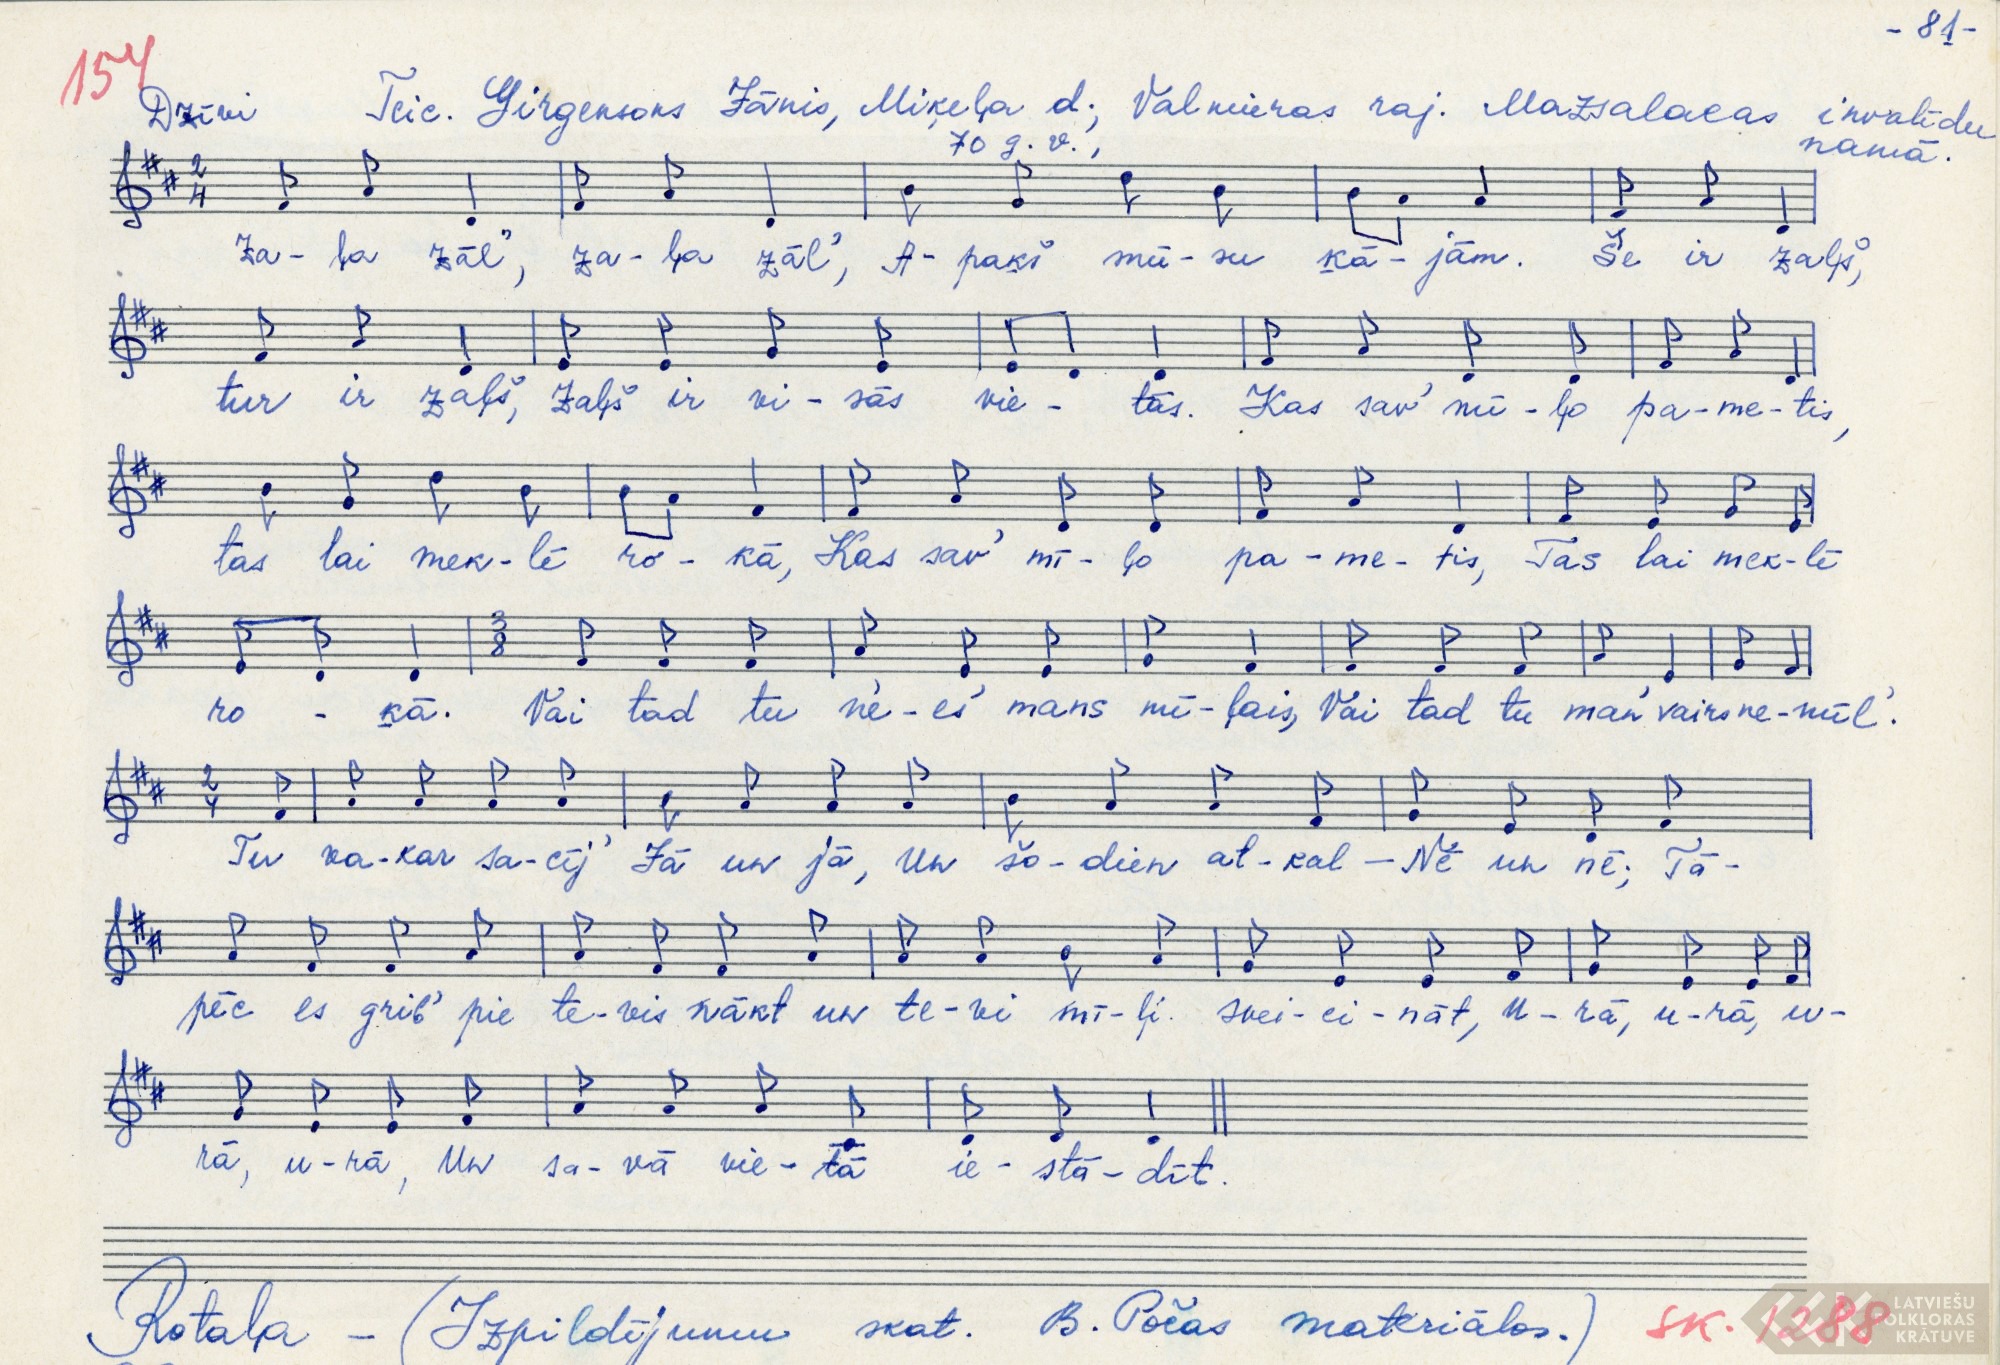 - 81 -
154
Dzīvi Teic. Girgensons Jānis, Miķeļa d., Valmieras raj. Mazsalacas invalīdu
70 g. v., namā.
2/4
Za-ļa zāl', za-ļa zāl', A-pakš mū-su kā-jām. Še ir zaļš,
tur ir zaļš, zaļš ir vi-sās vie-tās. Kas sav' mī-ļo pa-me-tis,
tas lai mek-lē ro-kā, Kas sav' mī-ļo pa-me-tis, Tas lai mek-lē
3/8
ro - kā. Vai tad tu ne-es' mans mī-ļais, Vai tad tu man' vairs ne-mīl'.
2/4
Tu va-kar sa-cīj' Jā un jā, Un šo-dien at-kal - Nē un nē; Tā-
pēc es grib' pie te-vis nākt un te-vi mī-ļi svei-ci-nāt, U-rā, u-rā, u-
rā, u-rā, Un sa-vā vie-tā ie-stā-dīt.
Rotaļa - (Izpildījumu skat. B. Počas materiālos.) SK. 1288
LATVIEŠU
FOLKLORAS
KRĀTUVE